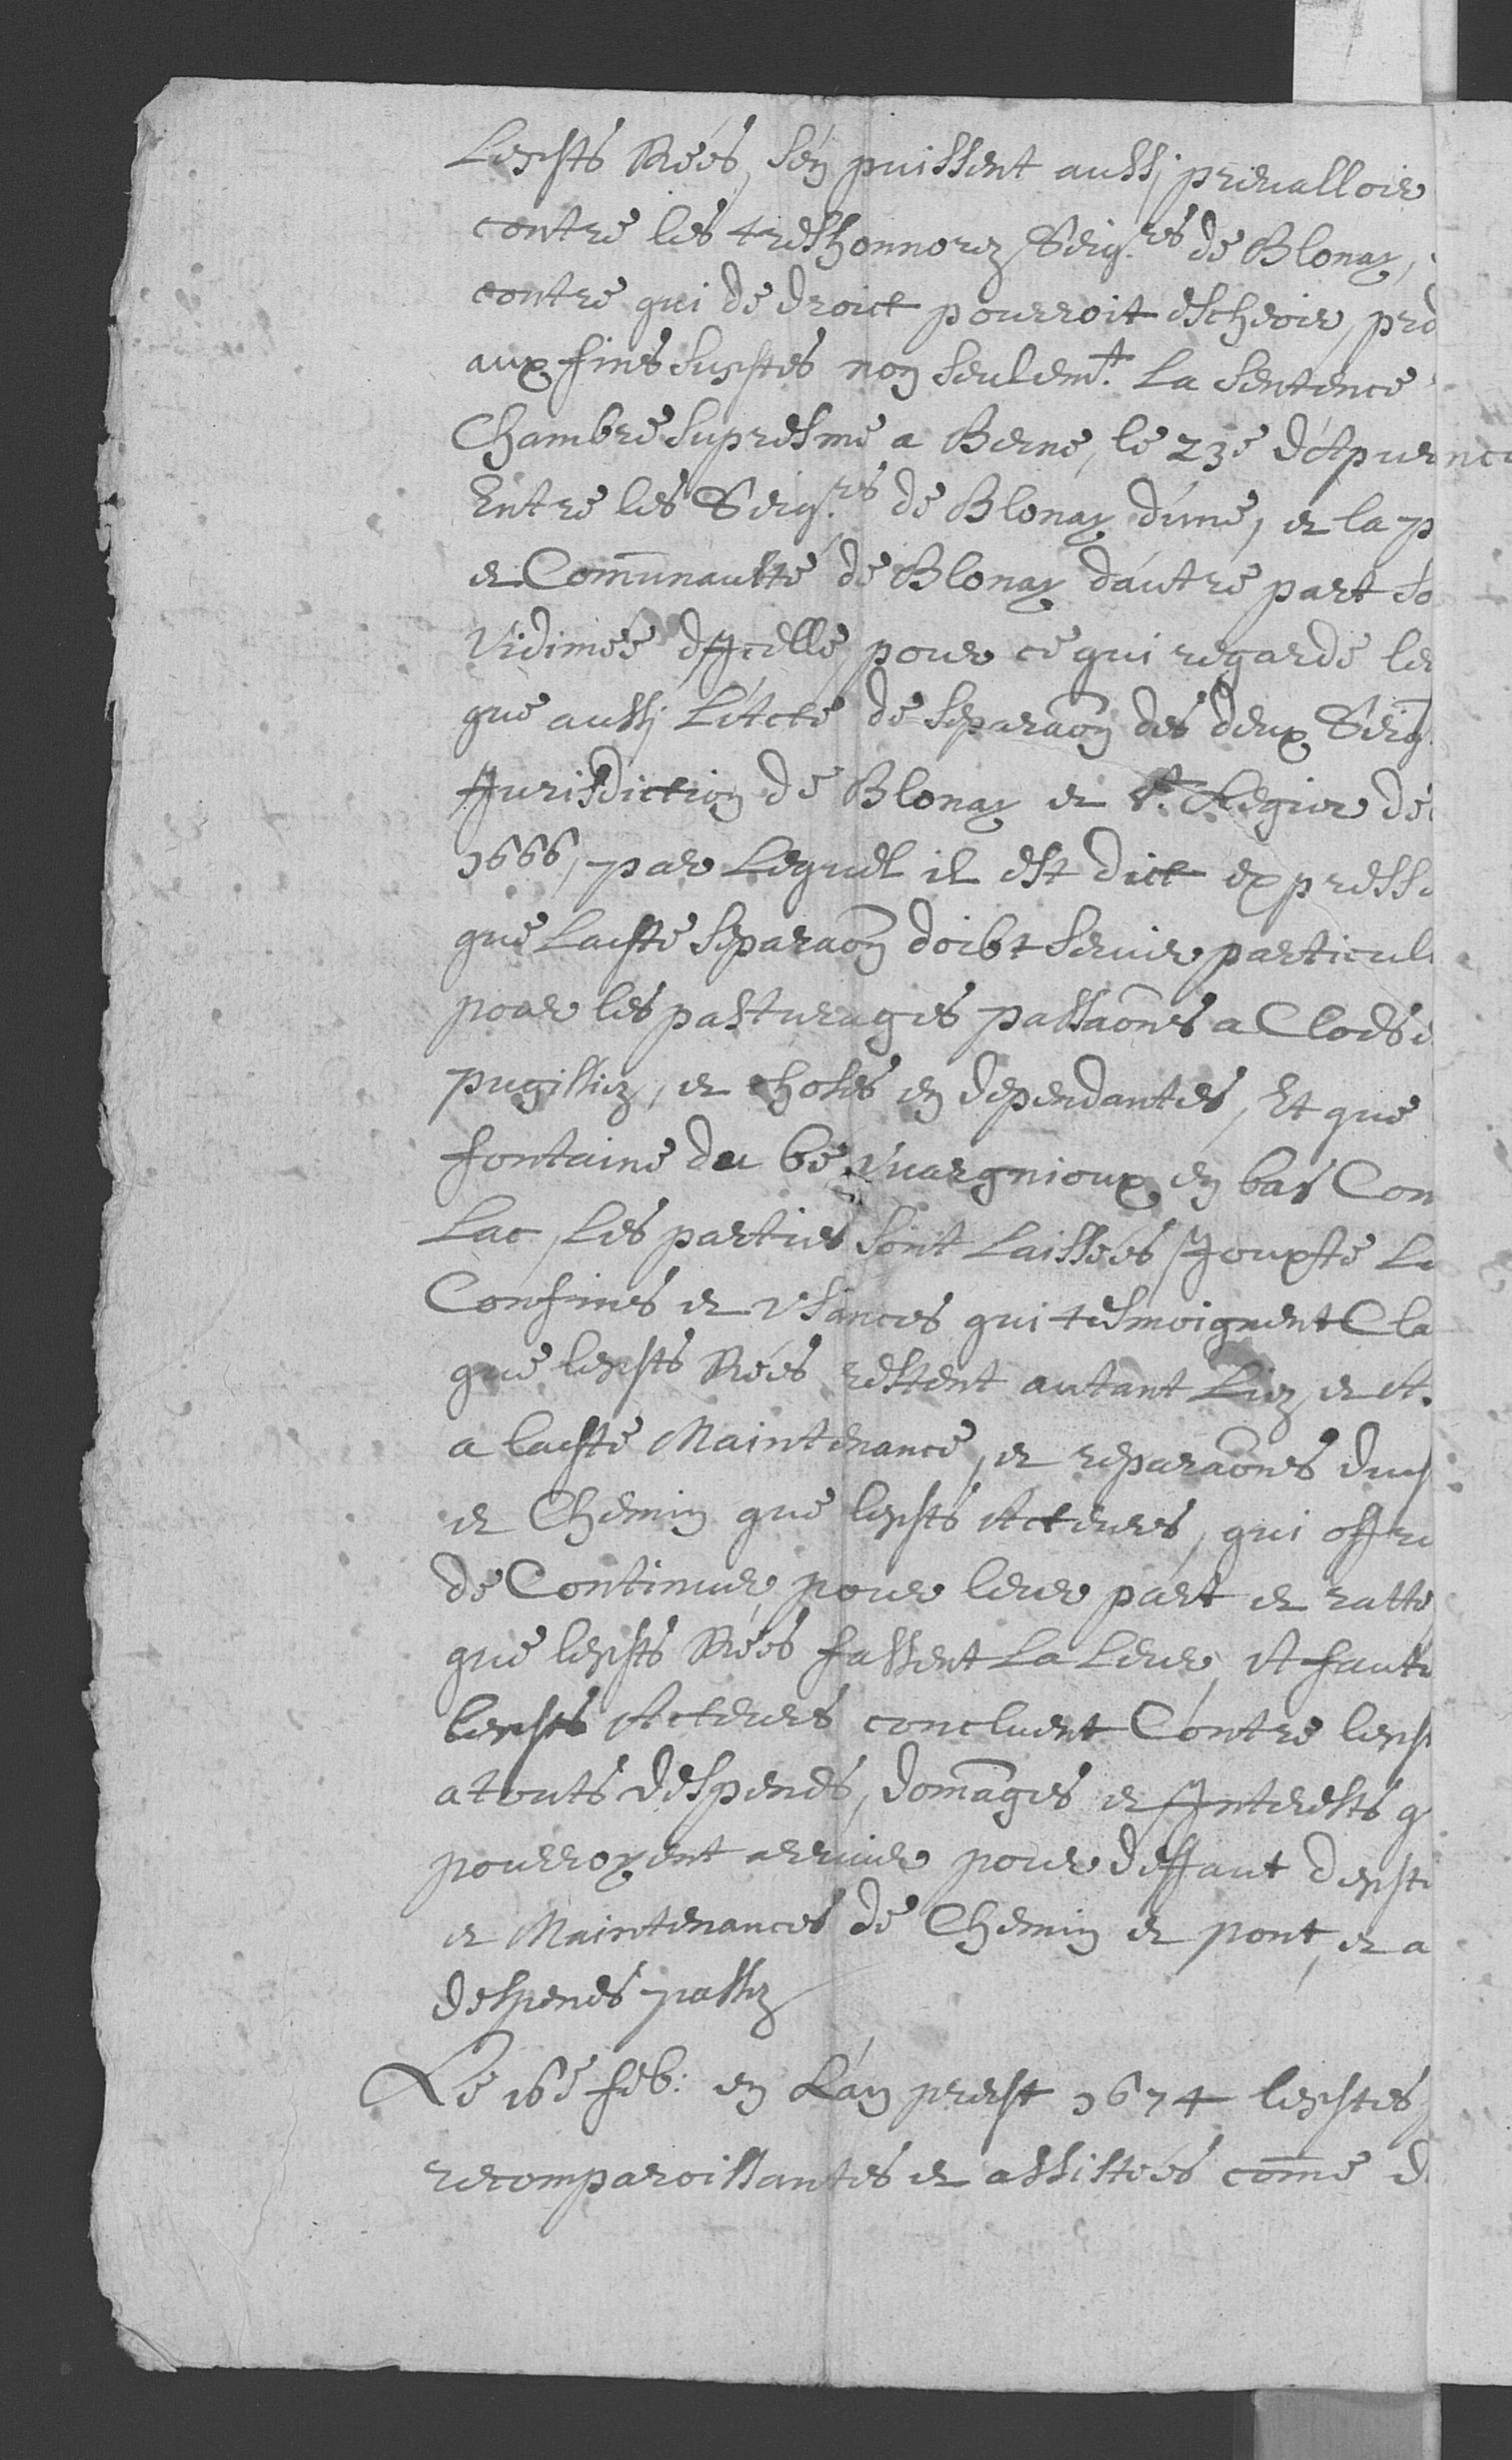 Lesdts Rées, s'en puissent aussj preualloir
contre les treshonnorez Seig.res de Blonay,
contre qui de droict pourroit escheoir, pro
aux fins susdtes non seulemt. La sentence
Chambre supresme a Berne, le 23e d'Apur
Entre les Seig.res de Blonay d'une, et la p
et Com̄unaulté de Blonay d'autre part so
Vidimée d'Icelle, pour ce qui regarde le
que aussj L'Acte de separaõn des deux Seig
Jurisdiction de Blonay et St. Legier de
1666, par Lequel il est dict expresse
que Ladte separaõn doibt seruir particul
pour les pasturages passaõns a Clods
pugissiez, et choses en dependantes, Et que
fontaine du bé Vuargnioux en bas Con
Lac, Les parties sont Laissées Jouxte Le
Confins et Vsances qui tesmoignent Cla
que lesdts Rées restent autant Liez et A
a ladte Maintenance, et reparaõns dud
et Chemin que lesdts Acteurs, qui offre
de Continuer, pour leur part et ratte
que lesdts Rées fassent La Leur, A faute
lesdts Acteurs concluent Contre lesd
a touts despends, dom̄ages et Interests q
pourroyent arriuer pour deffaut desdt
et Maintenances de Chemin et pont, et a
despends passez
Le 16e feb: en L'an predt 1674 lesdtes
recomparoissantes et assistées com̄e d